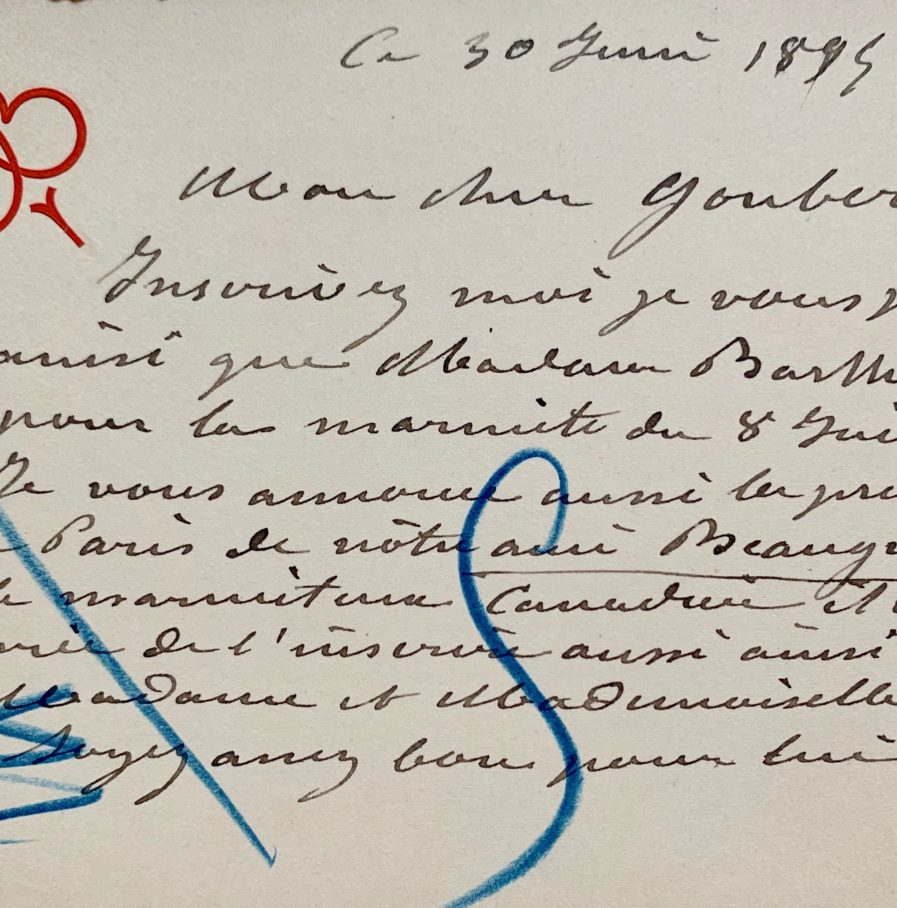 Ce 30 Juin 1895
Mon cher Gouber
Inscrivez moi je vous p
ainsi que Madame Barth
pour la marmite du 8 Jui
Je vous annonce aussi la pré
Paris de nôtre ami Beaugr
le marmiteux Canadien et
prie de l'inscrire aussi ainsi
Madame et Mademoiselle
Soyez assez bon pour lui